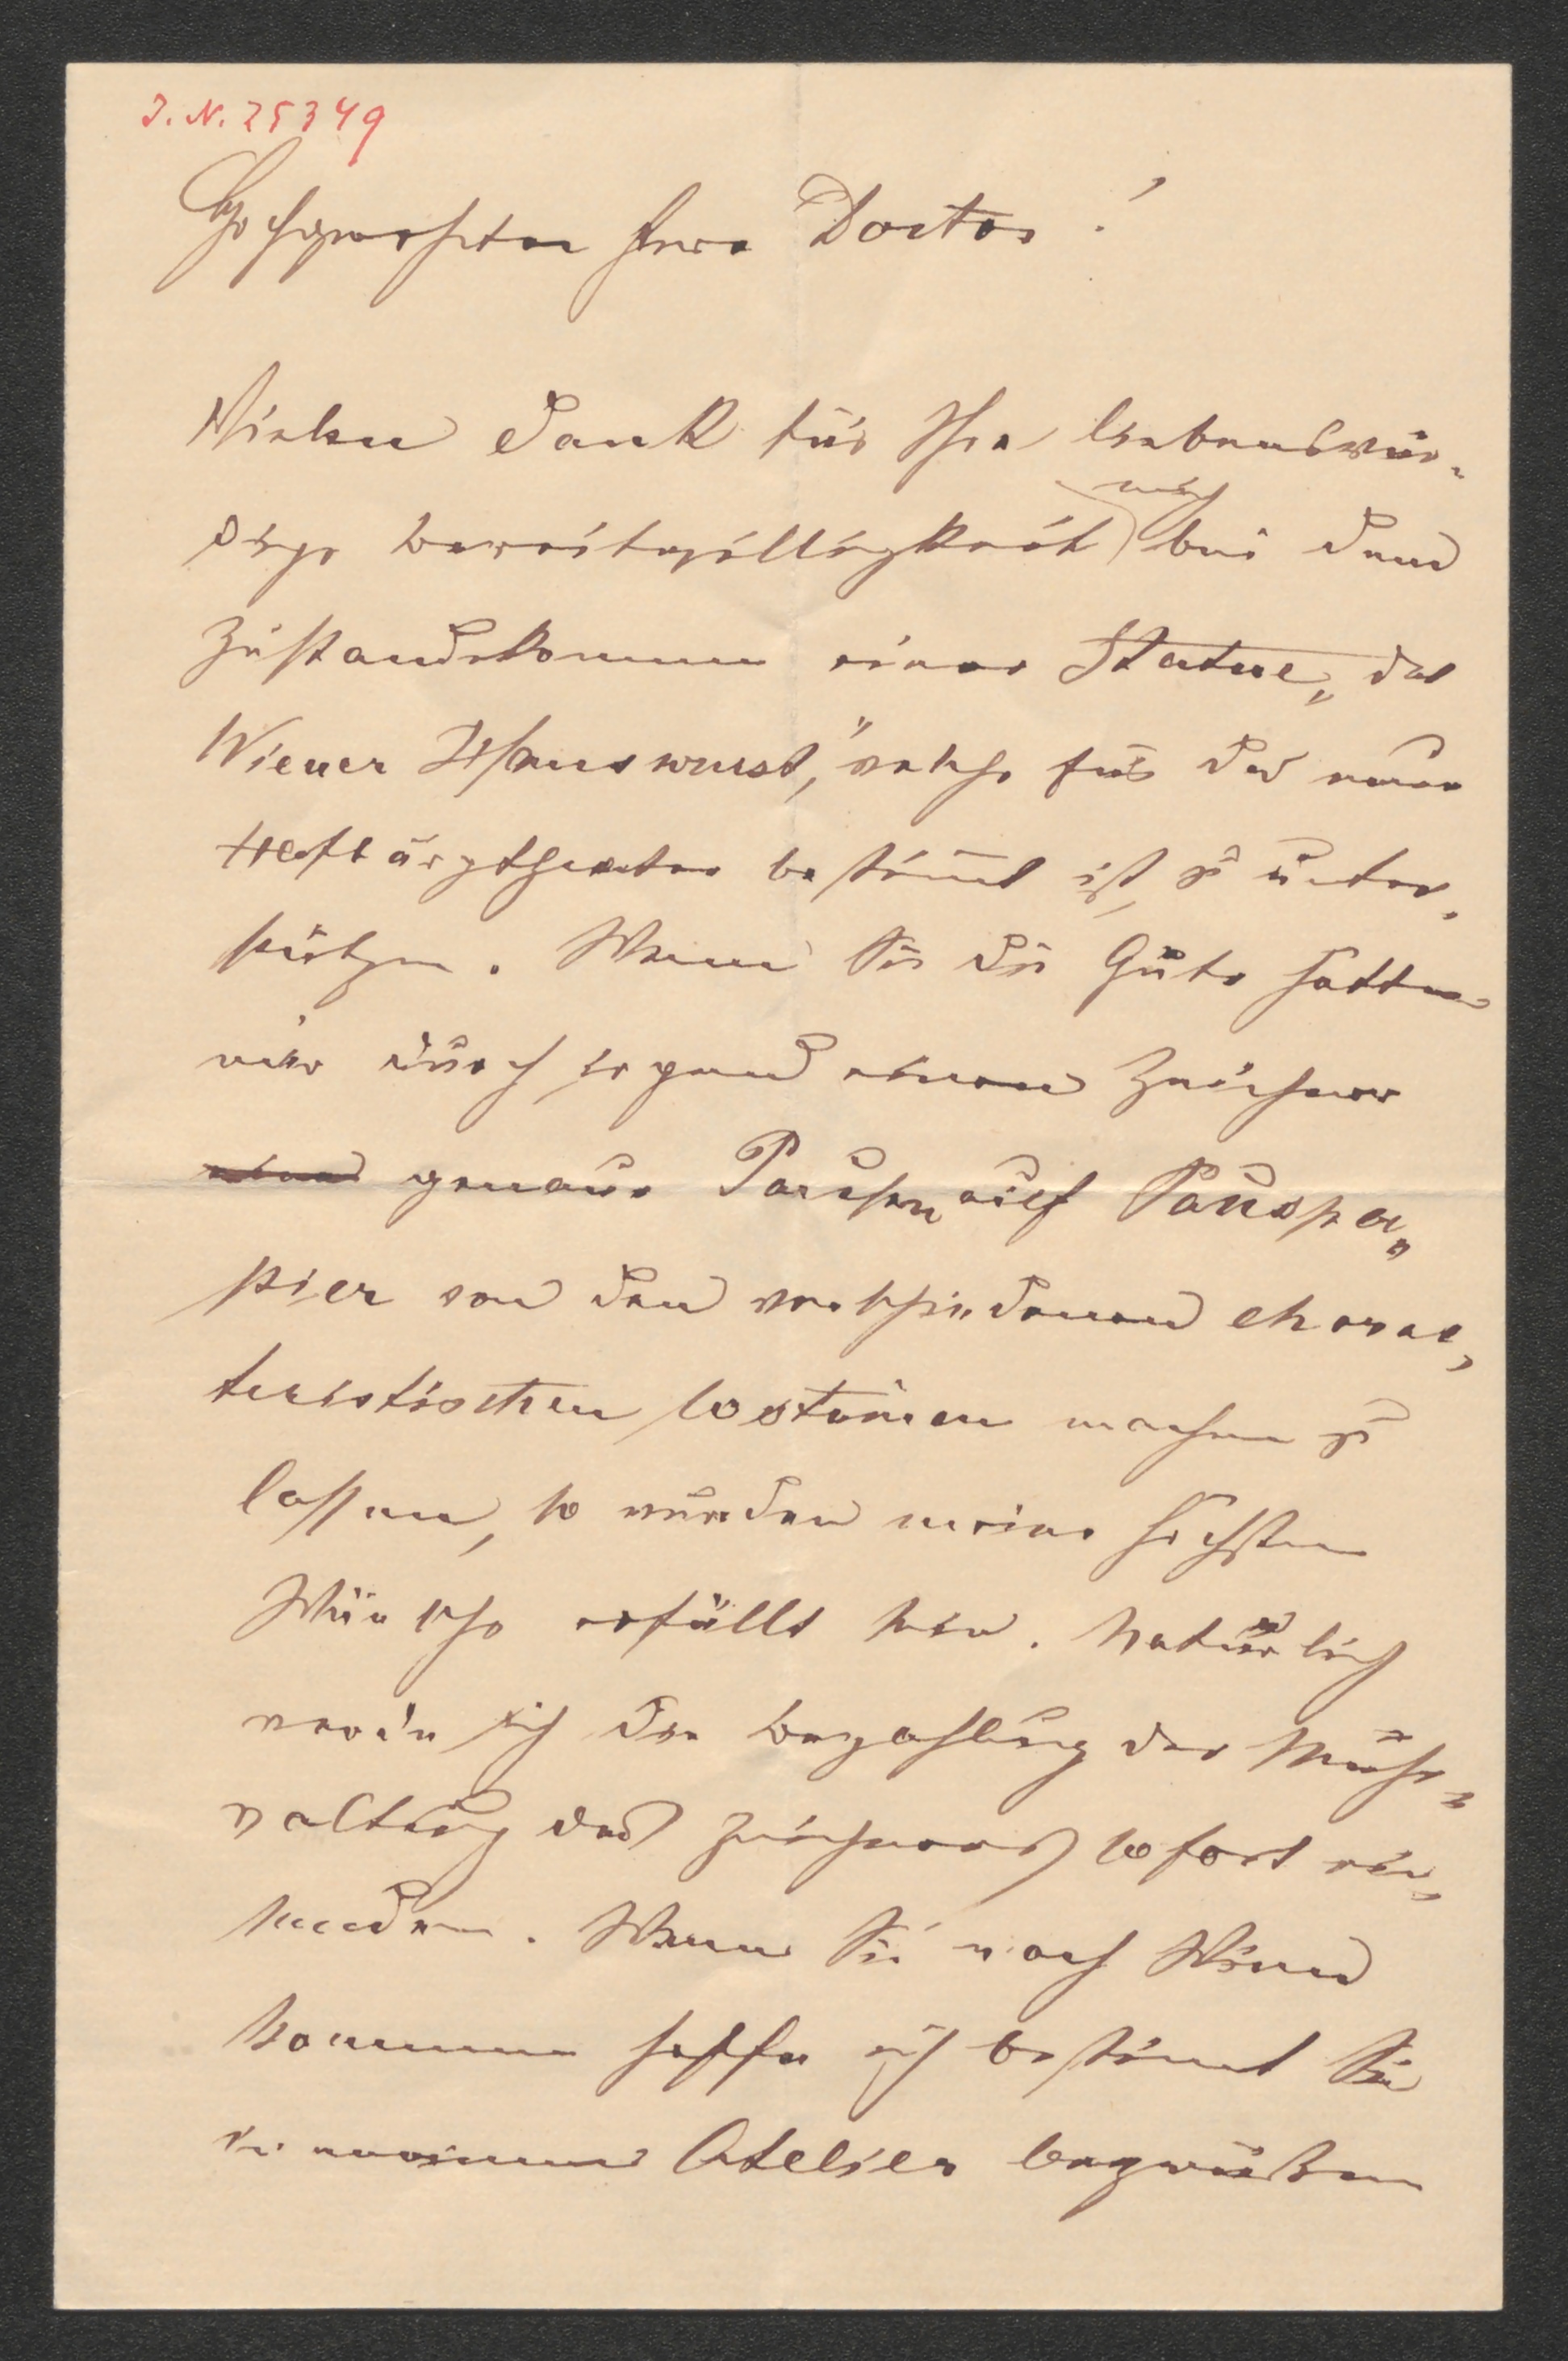 I. N. 25349
Hochgeehrter Herr Doctor!
Vielen Dank für Ihre liebenswür-
dige Bereitwilligkeit mich bei dem
Zustandekommen einer Statue, „der
Wiener Hanswurst,“ welche für das neue
Hofburgtheater bestimt ist, zu unter-
stützen. Wenn Sie die Güte hatten
mir durch irgend einen Zeichner
genaue Pauschen auf Pauspa-
pier von den verschiedenen charac-
teristischen Costümen machen zu
lassen, so würden meine höchsten
Wünsche erfüllt sein. Natürlich
werde ich die Bezahlung der Mühe-
waltung des Zeichners sofort ein-
senden. Wenn Sie nach Wien
kommen hoffe ich bestimt Sie
in meinem Atelier begrüßen